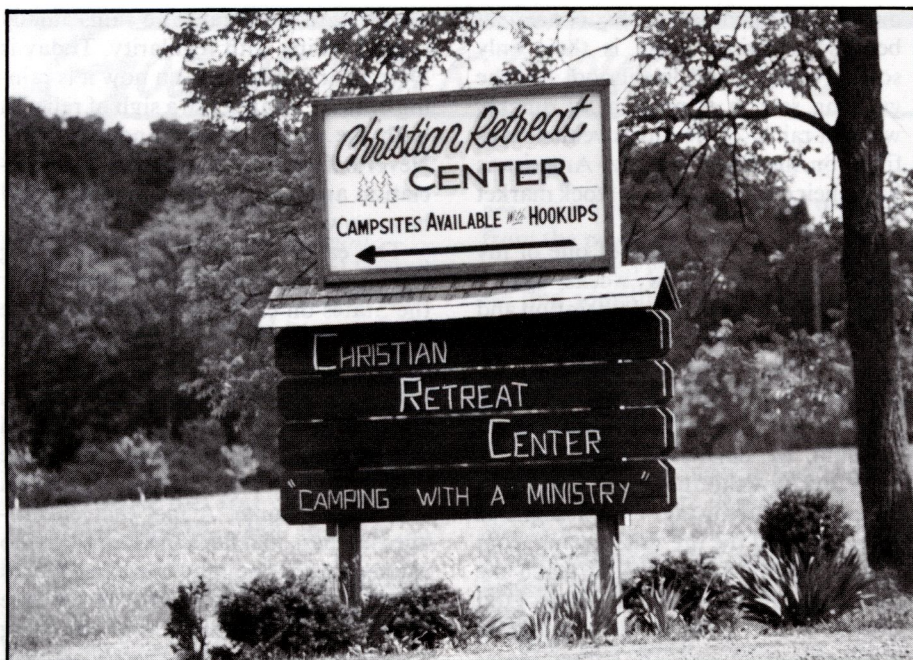 Christian Retreat
CENTER
CAMPSITES AVAILABLE WITH HOOKUPS
CHRISTIAN
RETREAT
CENTER
"CAMPING WITH A MINISTRY"